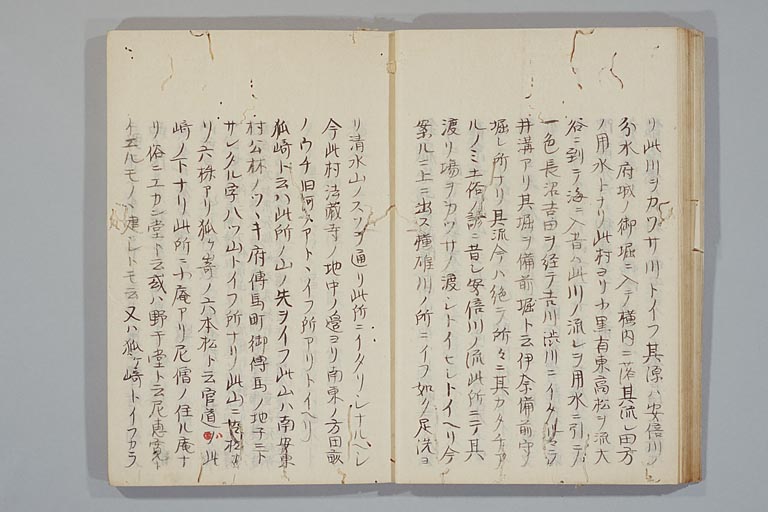 リ此川ヲカワサ川トイフ其源ハ安倍川ノ
分水府城ノ御堀ニ入テ横内ニ落其流レ田方
ノ用水トナリ此村ヨリ小黒有東高松ヲ流大
谷ニ到テ海ニ入昔ハ此川ノ流レヲ用水ニ引テ
一色長沼吉田ヲ経テ吉川渋川ニイタル
井溝アリ其堀ヲ備前堀ト云伊奈備前守ノ
堀レ所ナリ其流今ハ絶テ所々ニ其カタチア
ルノミ土俗ノ諺ニ昔シ安倍川ノ流此所ニテ其
渡リ場ヲカワサノ渡シトイヒシトイヘリ今
案ルニ上ニ出ス横雄川ノ所ニイフ如ク足洗ヨ
リ清水山ノスソヲ通リ此所ニイタリシナルヘシ
今此村法蔵寺ノ地中ノ邊ヨリ南東ノ方田畝
ノウチ旧河アトヽイフ所アリトイヘリ
狐崎ト云ハ此所ノ山ノ先ヲイフ此山ハ南安東
村公林ノツヽキ府傳馬町御傳馬ノ地子ニト
サレタル字八ツ山トイフ所ナリ此山ニ
リ六株アリ狐ヶ崎ノ六本松ト云官道ハ此
崎ノ下ナリ此所ニ小庵アリ尼僧ノ住ル庵ナ
リ俗ニエカン堂ト云或ハ野干堂ト云尼恵
イエルモノヽ建シトモ云又ハ狐ヶ崎トイフカラ